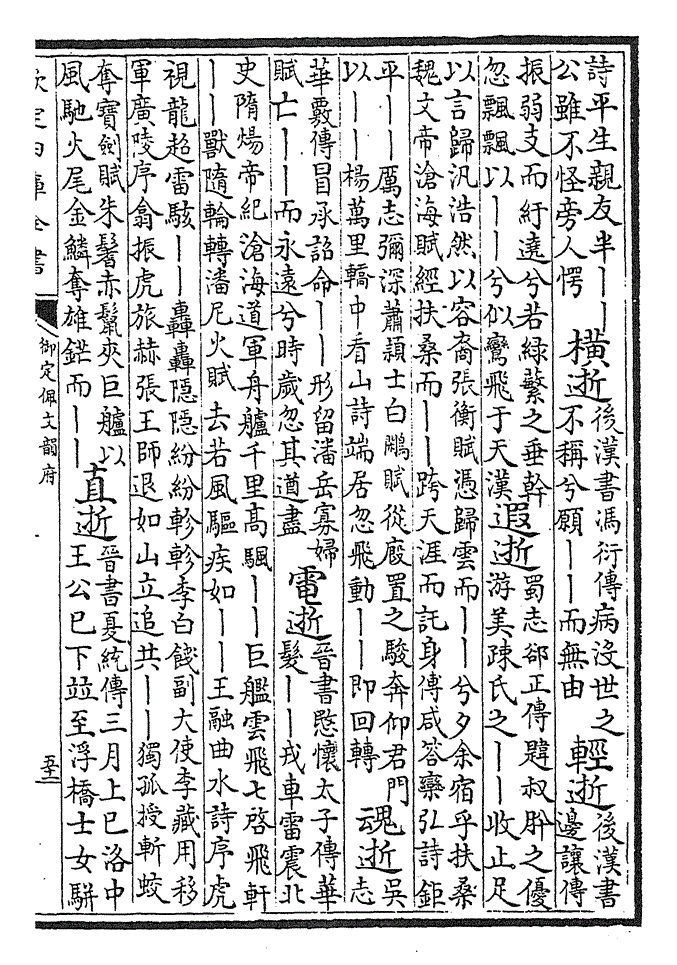 詩平生親友半丨丨
公雖不怪旁人愕
橫逝
後漢書馮衍傳病沒世之
不稱兮願丨丨而無由
輕逝
後漢書
邊讓傳
振弱支而紆遶兮若綠蘩之垂幹
忽飄飄以丨丨兮似鸞飛于天漢
遐逝
蜀志郤正傳韙叔肸之優
游美疎氏之丨丨收止足
以言歸汎浩然以容裔張衡賦憑歸雲而丨丨兮夕余宿乎扶桑
魏文帝滄海賦經扶桑而丨丨跨天涯而託身傳咸答欒弘詩鉅
平丨丨厲志彌深蕭穎士白鷴賦從廄置之駿奔仰君門
以丨丨楊萬里轎中看山詩端居忽飛動丨丨即回轉
魂逝
吳
志
華覈傳冒承詔命丨丨形留潘岳寡婦
賦亡丨丨而永遠兮時歲忽其遒盡
電逝
晉書愍懷太子傳華
髮丨丨戎車雷震北
史隋煬帝紀滄海道軍舟艫千里高颿丨丨巨艦雲飛七啓飛軒
丨丨獸隨輪轉潘尼火賦去若風驅疾如丨丨王融曲水詩序虎
視龍超雷駭丨丨轟轟隱隱紛紛軫軫李白餞副大使李藏用移
軍廣陵序翕振虎旅赫張王師退如山立追共丨丨獨孤授斬蛟
奪寶劍賦朱鬐赤鬣夾巨艫以
風馳火尾金鱗奪雄鋩而丨丨
直逝
晉書夏統傳三月上巳洛中
王公已下竝至浮橋士女駢
欽定四庫全書
御定佩文韻府